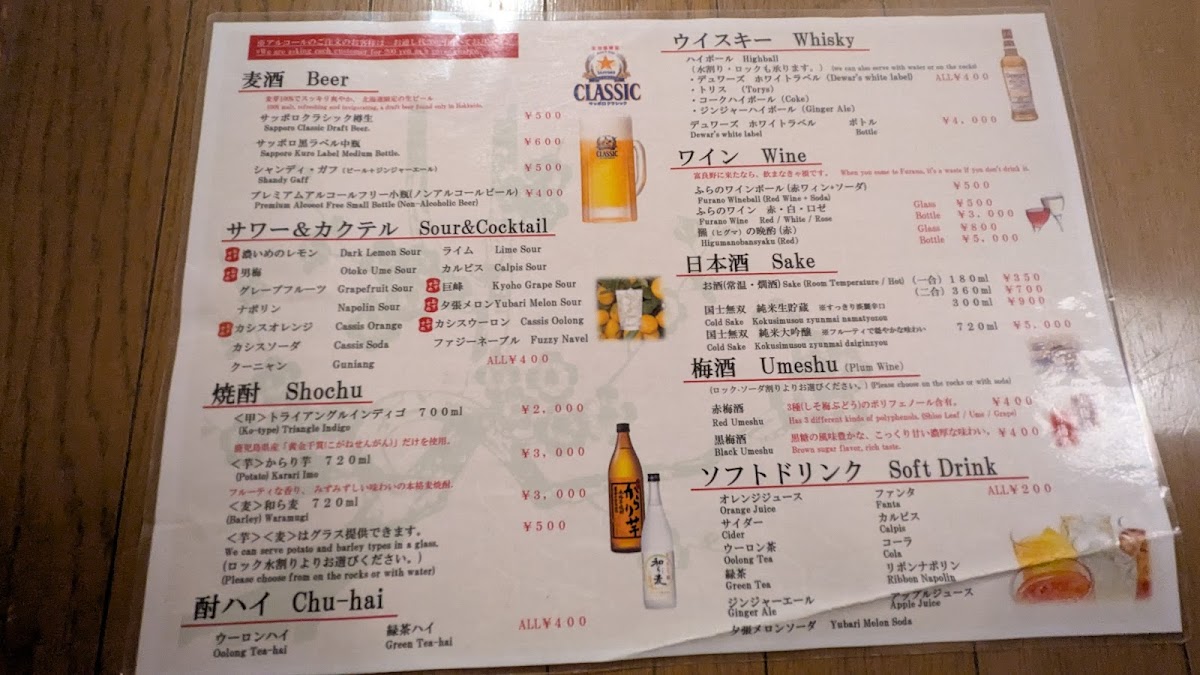 ※アルコールのご注文のお客様は お通し代
*We are asking each customer for 200 yen as a cover charge.
麦酒 Beer
麦芽100%でスッキリ爽やか、北海道限定の生ビール
100% malt, refreshing and invigorating, a draft beer found only in Hokkaido.
サッポロクラシック樽生 ¥500
Sapporo Classic Draft Beer.
サッポロ黒ラベル中瓶 ¥600
Sapporo Kuro Label Medium Bottle.
シャンディ・ガフ(ビール+ジンジャーエール) ¥500
Shandy Gaff
プレミアムアルコールフリー小瓶(ノンアルコールビール) ¥400
Premium Alcoool Free Small Bottle (Non-Alcoholic Beer)
CLASSIC
サッポロクラシック
サワー&カクテル Sour&Cocktail
濃いめのレモン Dark Lemon Sour
男梅 Otoko Ume Sour
グレープフルーツ Grapefruit Sour
ナポリン Napolin Sour
カシスオレンジ Cassis Orange
カシスソーダ Cassis Soda
クーニャン Guniang
ライム Lime Sour
カルピス Calpis Sour
巨峰 Kyoho Grape Sour
夕張メロン Yubari Melon Sour
カシスウーロン Cassis Oolong
ファジーネーブル Fuzzy Navel
ALL¥400
焼酎 Shochu
<甲>トライアングルインディゴ 700ml ¥2,000
(Ko-type) Triangle Indigo
鹿児島県産「黄金千貫(こがねせんがん)」だけを使用。
<芋>からり芋 720ml ¥3,000
(Potato) Karari Imo
フルーティな香り、みずみずしい味わいの本格麦焼酎。
<麦>和ら麦 720ml ¥3,000
(Barley) Waramugi
<芋><麦>はグラス提供できます。 ¥500
We can serve potato and barley types in a glass.
(ロック水割りよりお選びください。)
(Please choose from on the rocks or with water)
からり芋
和ら麦
酎ハイ Chu-hai
ウーロンハイ
Oolong Tea-hai
緑茶ハイ
Green Tea-hai
ALL¥400
ウイスキー Whisky
ハイボール Highball
(水割り・ロックも承ります。) (we can also serve with water or on the rocks)
・デュワーズ ホワイトラベル (Dewar's white label) ALL¥400
・トリス (Torys)
・コークハイボール (Coke)
・ジンジャーハイボール (Ginger Ale)
デュワーズ ホワイトラベル ボトル ¥4,000
Dewar's white label Bottle
ワイン Wine
富良野に来たなら、飲まなきゃ損です。 When you come to Furano, it's a waste if you don't drink it.
ふらのワインボール(赤ワイン+ソーダ) ¥500
Furano Wineball (Red Wine + Soda)
ふらのワイン 赤・白・ロゼ Glass ¥500
Furano Wine Red / White / Rose Bottle ¥3,000
羆(ヒグマ)の晩酌(赤) Glass ¥800
Higumanobansyaku (Red) Bottle ¥5,000
日本酒 Sake
お酒(常温・燗酒) Sake (Room Temperature / Hot) (一合) 180ml ¥350
(二合) 360ml ¥700
国士無双 純米生貯蔵 ※すっきり淡麗辛口 300ml ¥900
Cold Sake Kokusimusou zyunmai namatyozou
国士無双 純米大吟醸 ※フルーティで穏やかな味わい 720ml ¥5,000
Cold Sake Kokusimusou zyunmai daiginzyou
梅酒 Umeshu (Plum Wine)
(ロック・ソーダ割りよりお選びください。) (Please choose on the rocks or with soda)
赤梅酒 3種(しそ梅ぶどう)のポリフェノール含有。 ¥400
Red Umeshu Has 3 different kinds of polyphenols. (Shiso Leaf / Ume / Grape)
黒梅酒 黒糖の風味豊かな、こっくり甘い濃厚な味わい。 ¥400
Black Umeshu Brown sugar flavor, rich taste.
ソフトドリンク Soft Drink
オレンジジュース
Orange Juice
サイダー
Cider
ウーロン茶
Oolong Tea
緑茶
Green Tea
ジンジャーエール
Ginger Ale
夕張メロンソーダ Yubari Melon Soda
ファンタ
Fanta
カルピス
Calpis
コーラ
Cola
リボンナポリン
Ribbon Napolin
アップルジュース
Apple Juice
ALL¥200